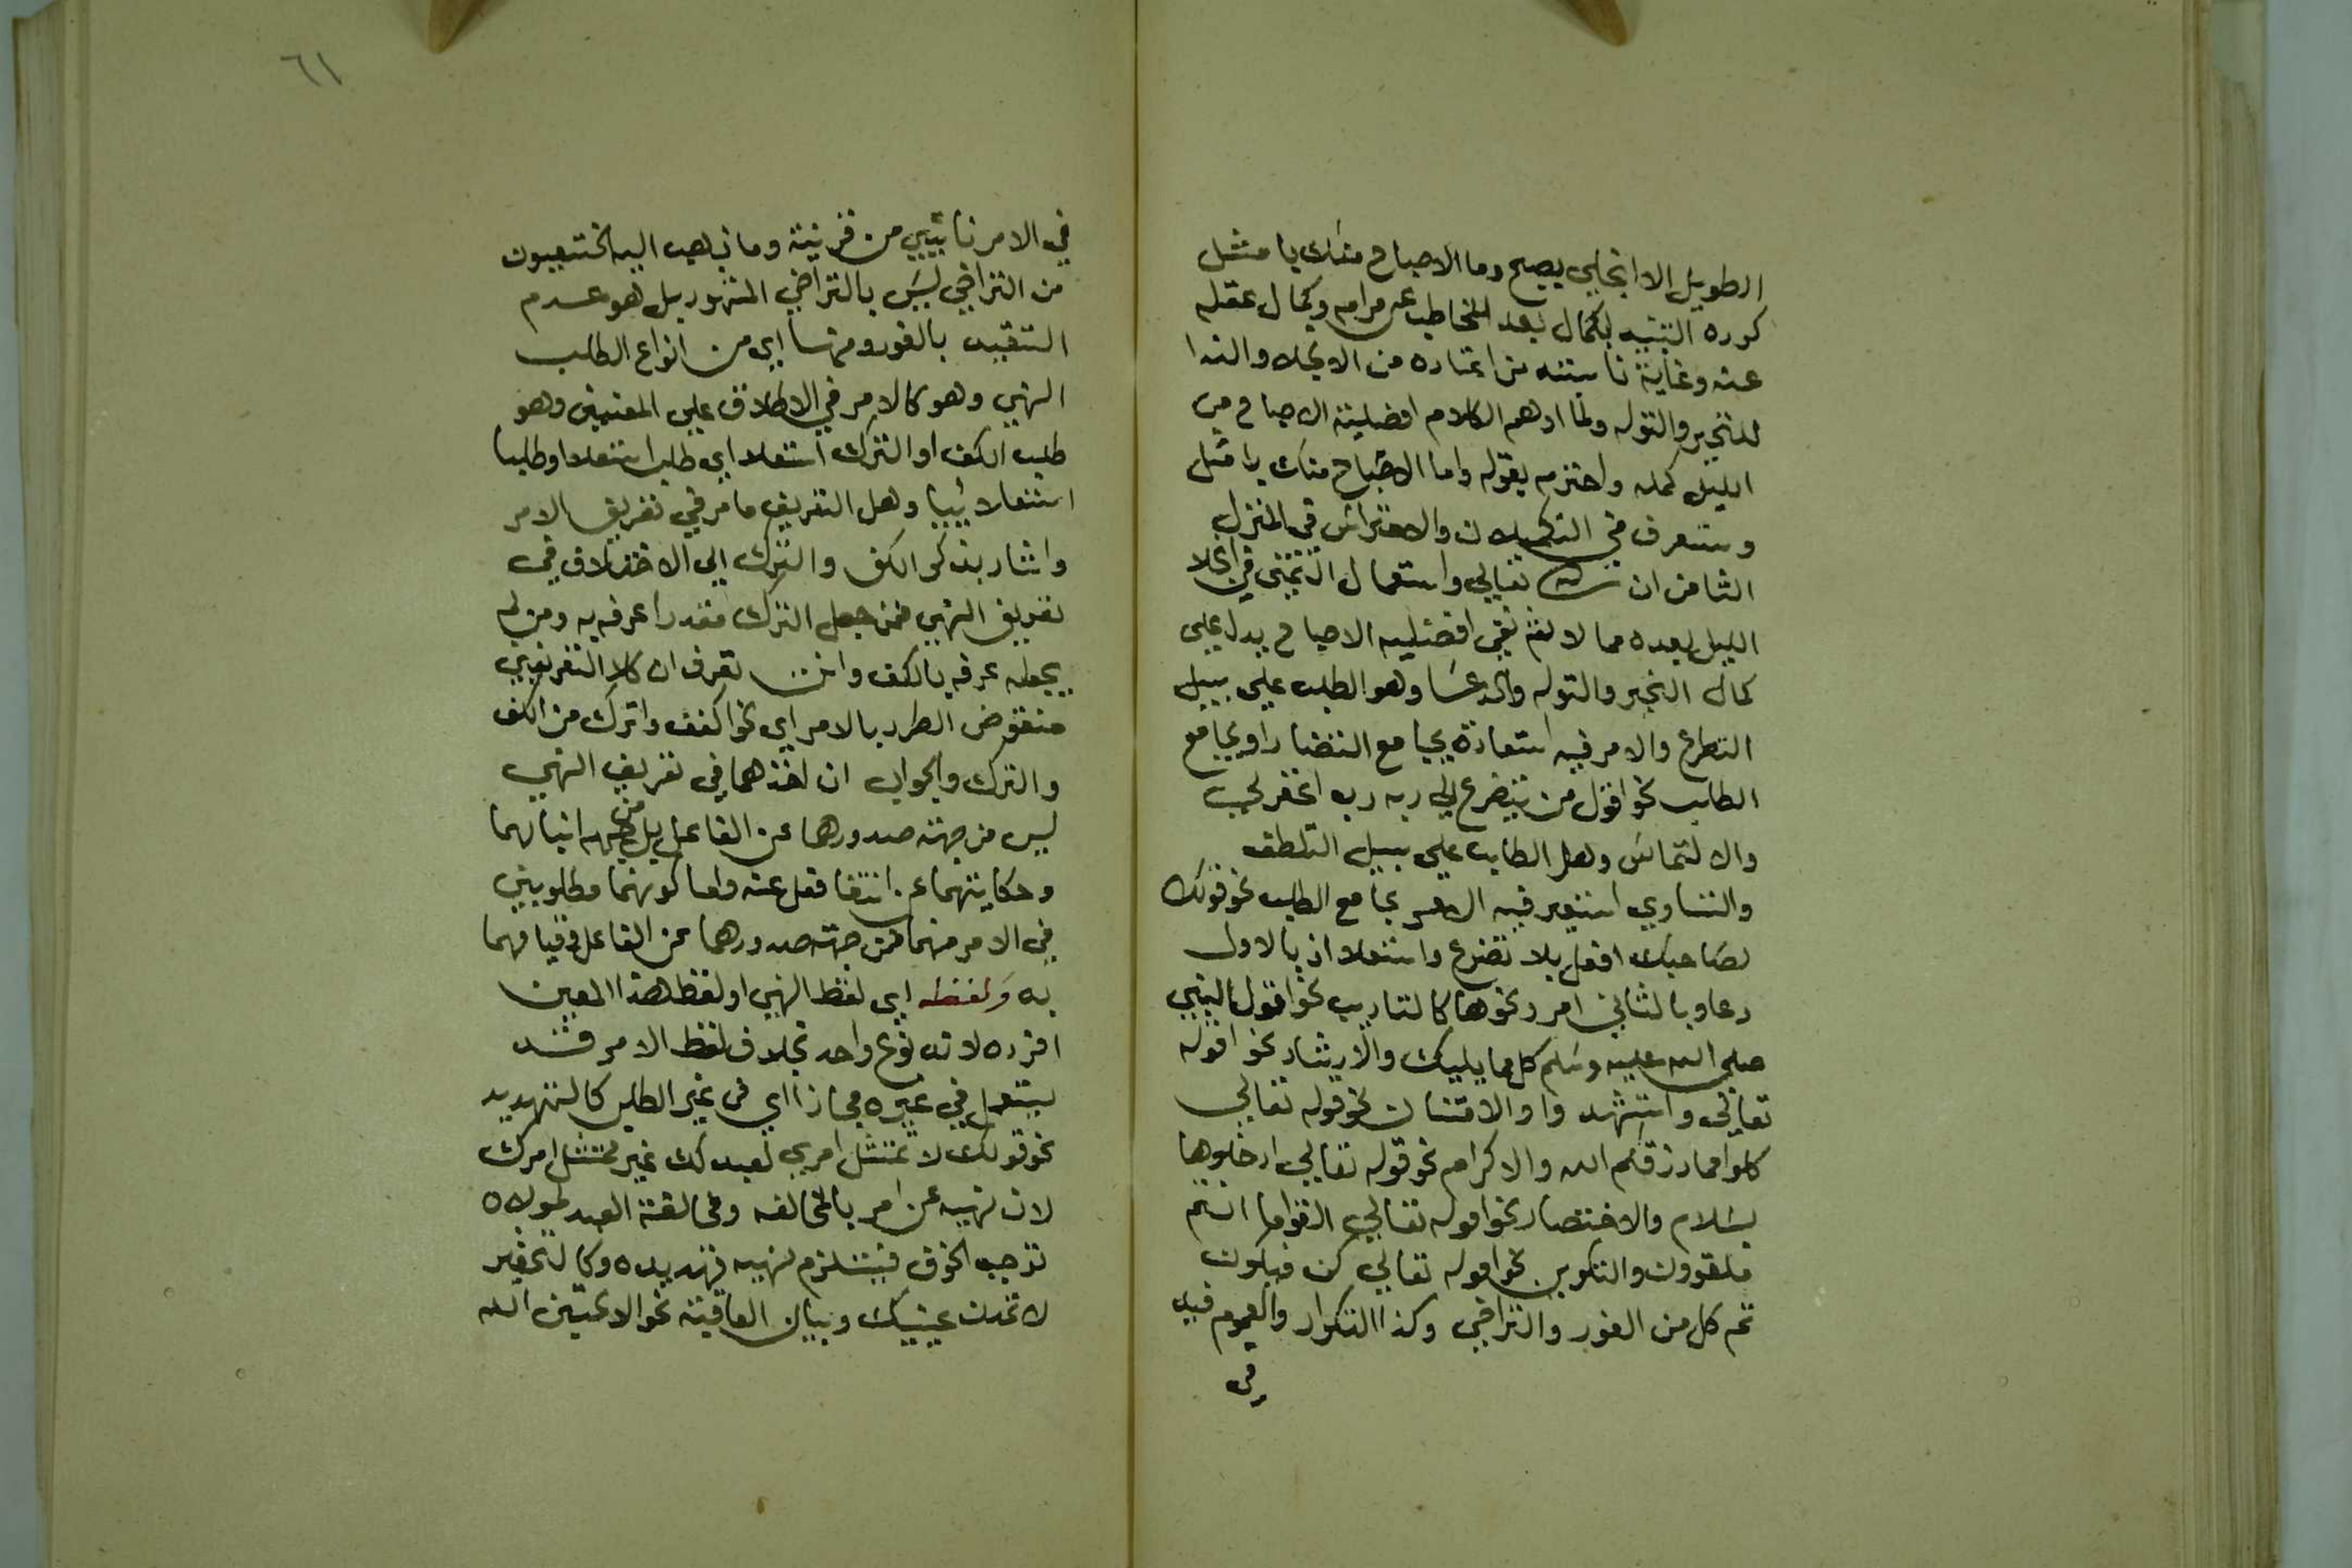 الطويل الا انجلي بصبح وما الاصباح منك بامثل
كرره التنبيه لكمال بعد المخاطب عن مرامه وكمال غفله
عنه وغاية تاسفه من اعتاده من الانجلاء والندا
للتحير والتوله ولما اوهم الكلام افضلية الاصباح من
الليل كمله واحترس بقوله وما الاصباح منك بامثل
وستعرف في التكميلات والاحتراس في المنزل
الثامن ان شا الله تعالى واستعمال التمني في انجلا
الليل بعده مما لا نفي افضلية الاصباح يدل على
كمال التحير والتوله والدعا وهو الطلب على سبيل
التضرع والامر فيه استعارة بجامع التضاد او بجامع
الطلب نحو اقول من يتضرع الى ربه رب اغفر لي
والالتماس وهو الطلب على سبيل التلطف
والتساوي استعير فيه الامر بجامع الطلب نحو قولك
لصاحبك افعل بلا تضرع واستعلا اذ بالاول
دعا وبالثاني امر ونحوها كالتاديب نحو قول النبي
صلى الله عليه وسلم كل مما يليك والارشاد نحو قوله
تعالى واستشهدوا والامتنان نحو قوله تعالى
كلوا مما رزقكم الله والاكرام نحو قوله تعالى ادخلوها
بسلام والاحتقار نحو قوله تعالى القوا ما انتم
ملقون والتكوين نحو قوله تعالى كن فيكون
ثم كل من الفور والتراخي وكذا التكرار والعموم فيه
في
٦١
في الامر ناشي من قرينة وما ذهب اليه الحنفيون
من التراخي ليس بالتراخي المشهور بل هو عدم
التقييد بالفور ومنها اي من انواع الطلب
النهي وهو كالامر في الاطلاق على المعنيين وهو
طلب الكف او الترك استعلا اي طلب استعلا او طلبا
استعلائيا وهل التعريف ما مر في تعريف الامر
واشار بذكر الكف والترك الى الاختلاف في
تعريف النهي فمن جعل الترك مقدرا عرفه به ومن لم
يجعله عرفه بالكف وانت تعرف ان كلا التعريفين
منقوض الطرد بالامر اي نحو اكفف واترك من الكف
والترك والجواب ان اخذهما في تعريف النهي
ليس من جهة صدورهما عن الفاعل بل من جهة اثباتهما
وحكايتهما عن انتفا فعل عنه واما كونهما مطلوبين
في الامر منهما فمن جهة صدورهما عن الفاعل وقيامهما
به ولفظه اي لفظ النهي او لفظ هذا المعين
افرده لانه نوع واحد بخلاف لفظ الامر قد
يستعمل في غيره مجازا اي في غير الطلب كالتهديد
نحو قولك لا تمتثل امري لعبد لك غير ممتثل امرك
لان نهيه عن امر بالمخالفة ومخالفة العبد لمولاه
توجب الخوف فيستلزم نهيه تهديده وكالتحقير
لا تمدن عينيك وبيان العاقبة نحو لا تحسبن الله